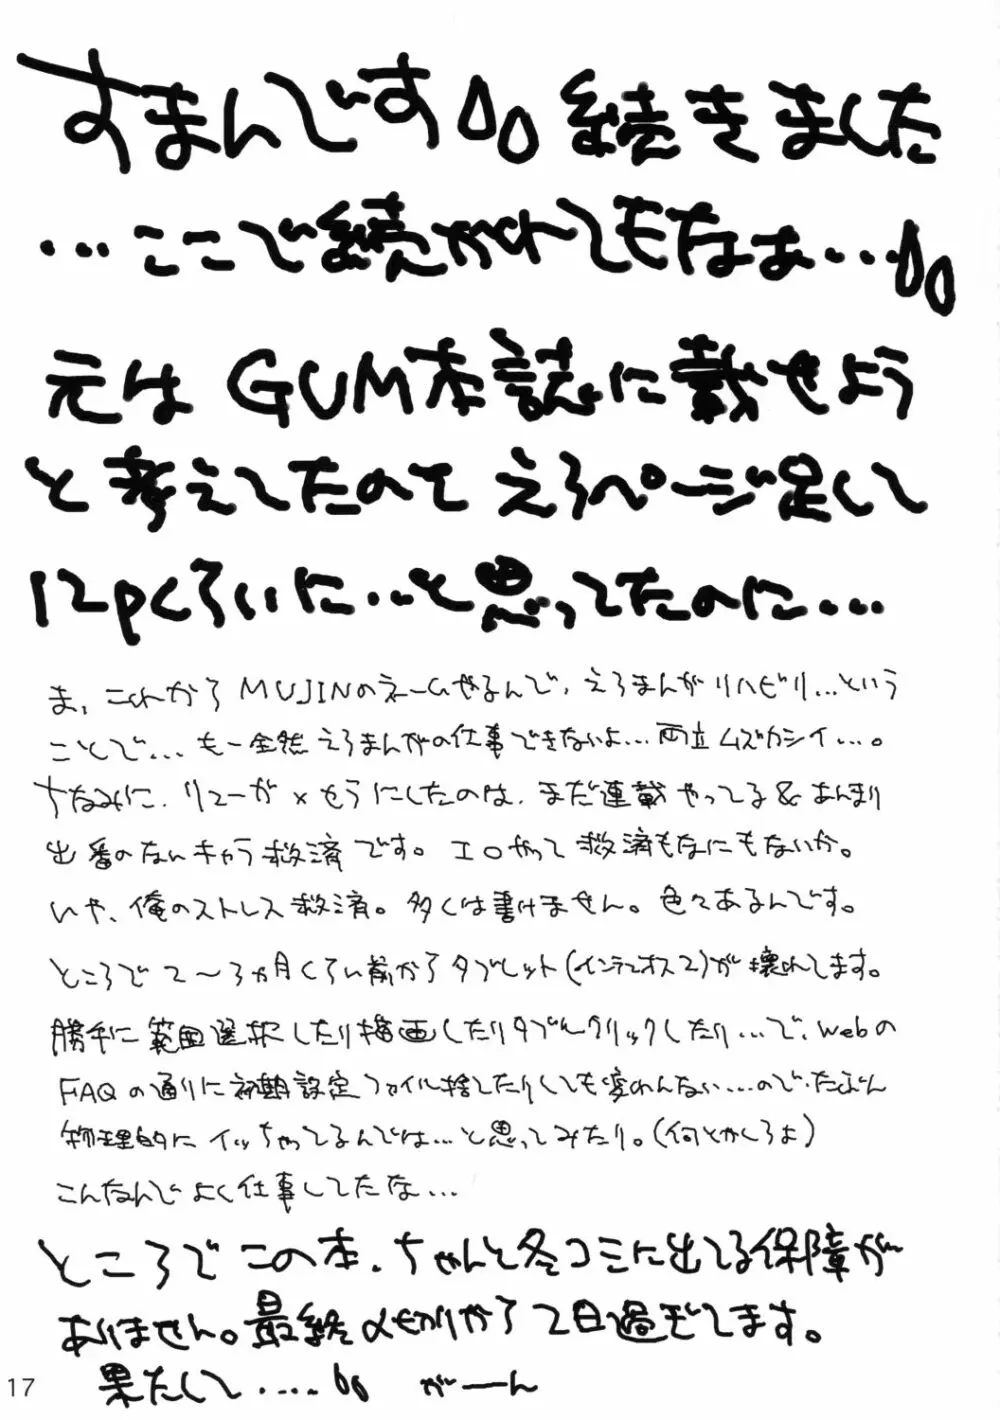 すまんです 続きました
…ここで続かれてもなぁ…
元は GUM本誌に載せよう
と考えてたのでえろページ足して
12pくらいに…と思ってたのに…
ま、これから MUJINのネームやるんで、えろまんがリハビリ…という
ことで… もー全然えろまんがの仕事できないよ…両立ムズカシイ…。
ちなみに、リューが×もうにしたのは、まだ連載やってる&あんまり
出番のないキャラ救済です。エロやって救済もなにもないか。
いや、俺のストレス救済。多くは書けません。色々あるんです。
ところで 2〜3ヵ月くらい前からタブレット(インテュオス2)が壊れてます。
勝手に範囲選択したり描画したりダブルクリックしたり…で、Webの
FAQの通りに初期設定ファイル捨てたりしても変わんない…ので、たぶん
物理的にイッちゃってるんでは…と思ってみたり。(何とかしろよ)
こんなんでよく仕事してたな…
ところでこの本、ちゃんと冬コミに出てる保障が
ありません。最終〆切りから2日過ぎてます。
果たして…… がーん
17